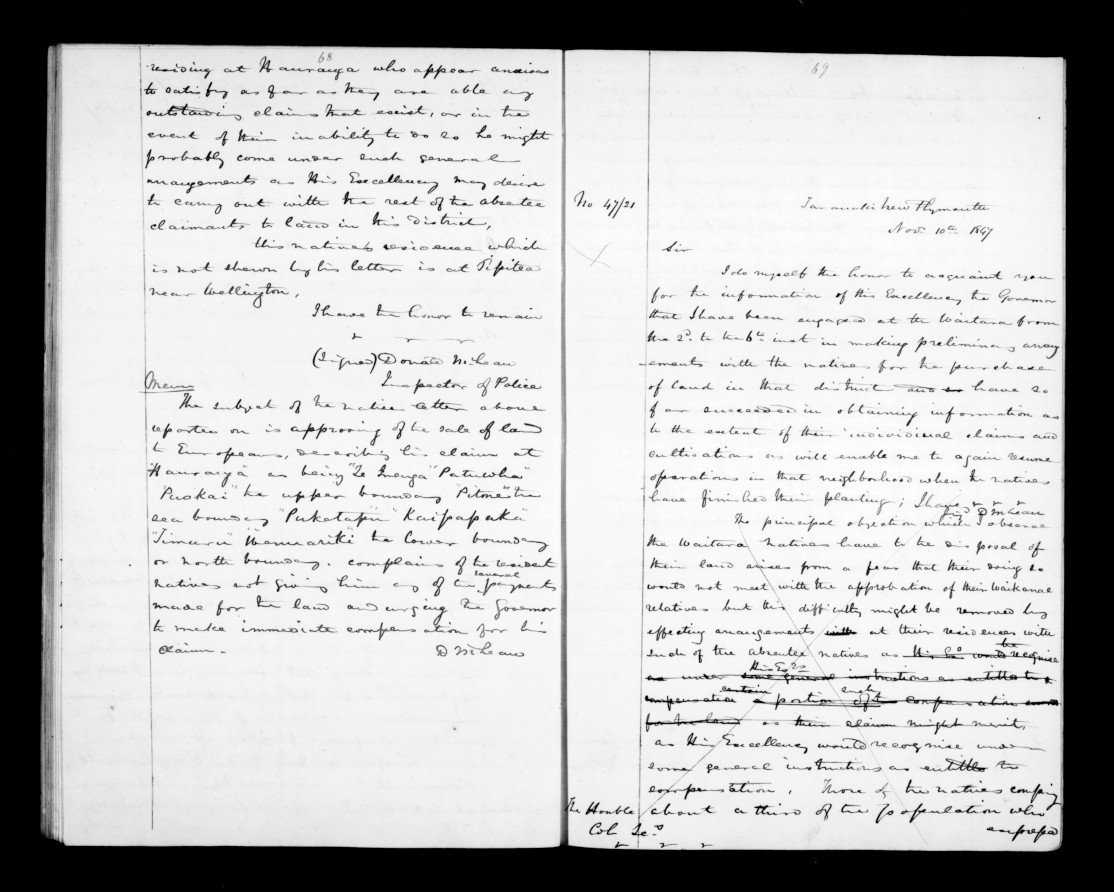 68
residing at Hauranga who appear anxious
to satisfy as far as they are able any
outstanding claims that exist, or in the
event of their inability to do so he might
probably come under such general
arrangements as His Excellency may desire
to carry out with the rest of the absentee
claimants to land in this district,
this natives residence which
is not shewn by his letter is at Pipitea
near Wellington,
I have the honor to remain
(Signed) Donald McLean
Inspector of Police
Memo
The subject of the native letter above
reported on is approving of the sale of land
to Europeans, describing his claim at
"Hauranga" as being "Te Inenga" "Patuwha"
"Puokai" the upper boundary "Pitone" the
sea boundary "Puketapu" Kaipapaka"
"Timaru" Wenuariki" the lower boundary
or north boundary. complains of the resident
natives not giving him any of the several payments
made for the land and urging the Governor
to make immediate compensation for his
claim.
D McLean
69
No 47/21
Taranaki New Plymouth
Nov. 10th 1847
Sir
I do myself the honor to acquaint you
for the information of His Excellency the Governor
that I have been engaged at the Waitara from
the 2d. to the 6th inst in making preliminary arrang
ements with the natives for the purchase
of land in that district and so have so
far succeeded in obtaining information as
to the extent of their individual claims and
cultivations as will enable me to again resume
operations in that neighborhood when the natives
have finished their planting; I have
D McLean
The principal objection which I observe
the Waitara natives have to the disposal of
their land arises from a fear that their doing so
would not meet with the approbation of their Waikanae
relatives but this difficulty might be removed by
effecting arrangements with at their residences with
such of the absentee natives as His Ex would be recognise
as under some general instructions as entitled to a
compensation certain a portion of such compensation
for the land as their claims might merit,
as His Excellency would recognise under
some general instructions as entitled to
compensation. Those of the natives compsing
about a third of the population who
The Honble
Col. Sec.